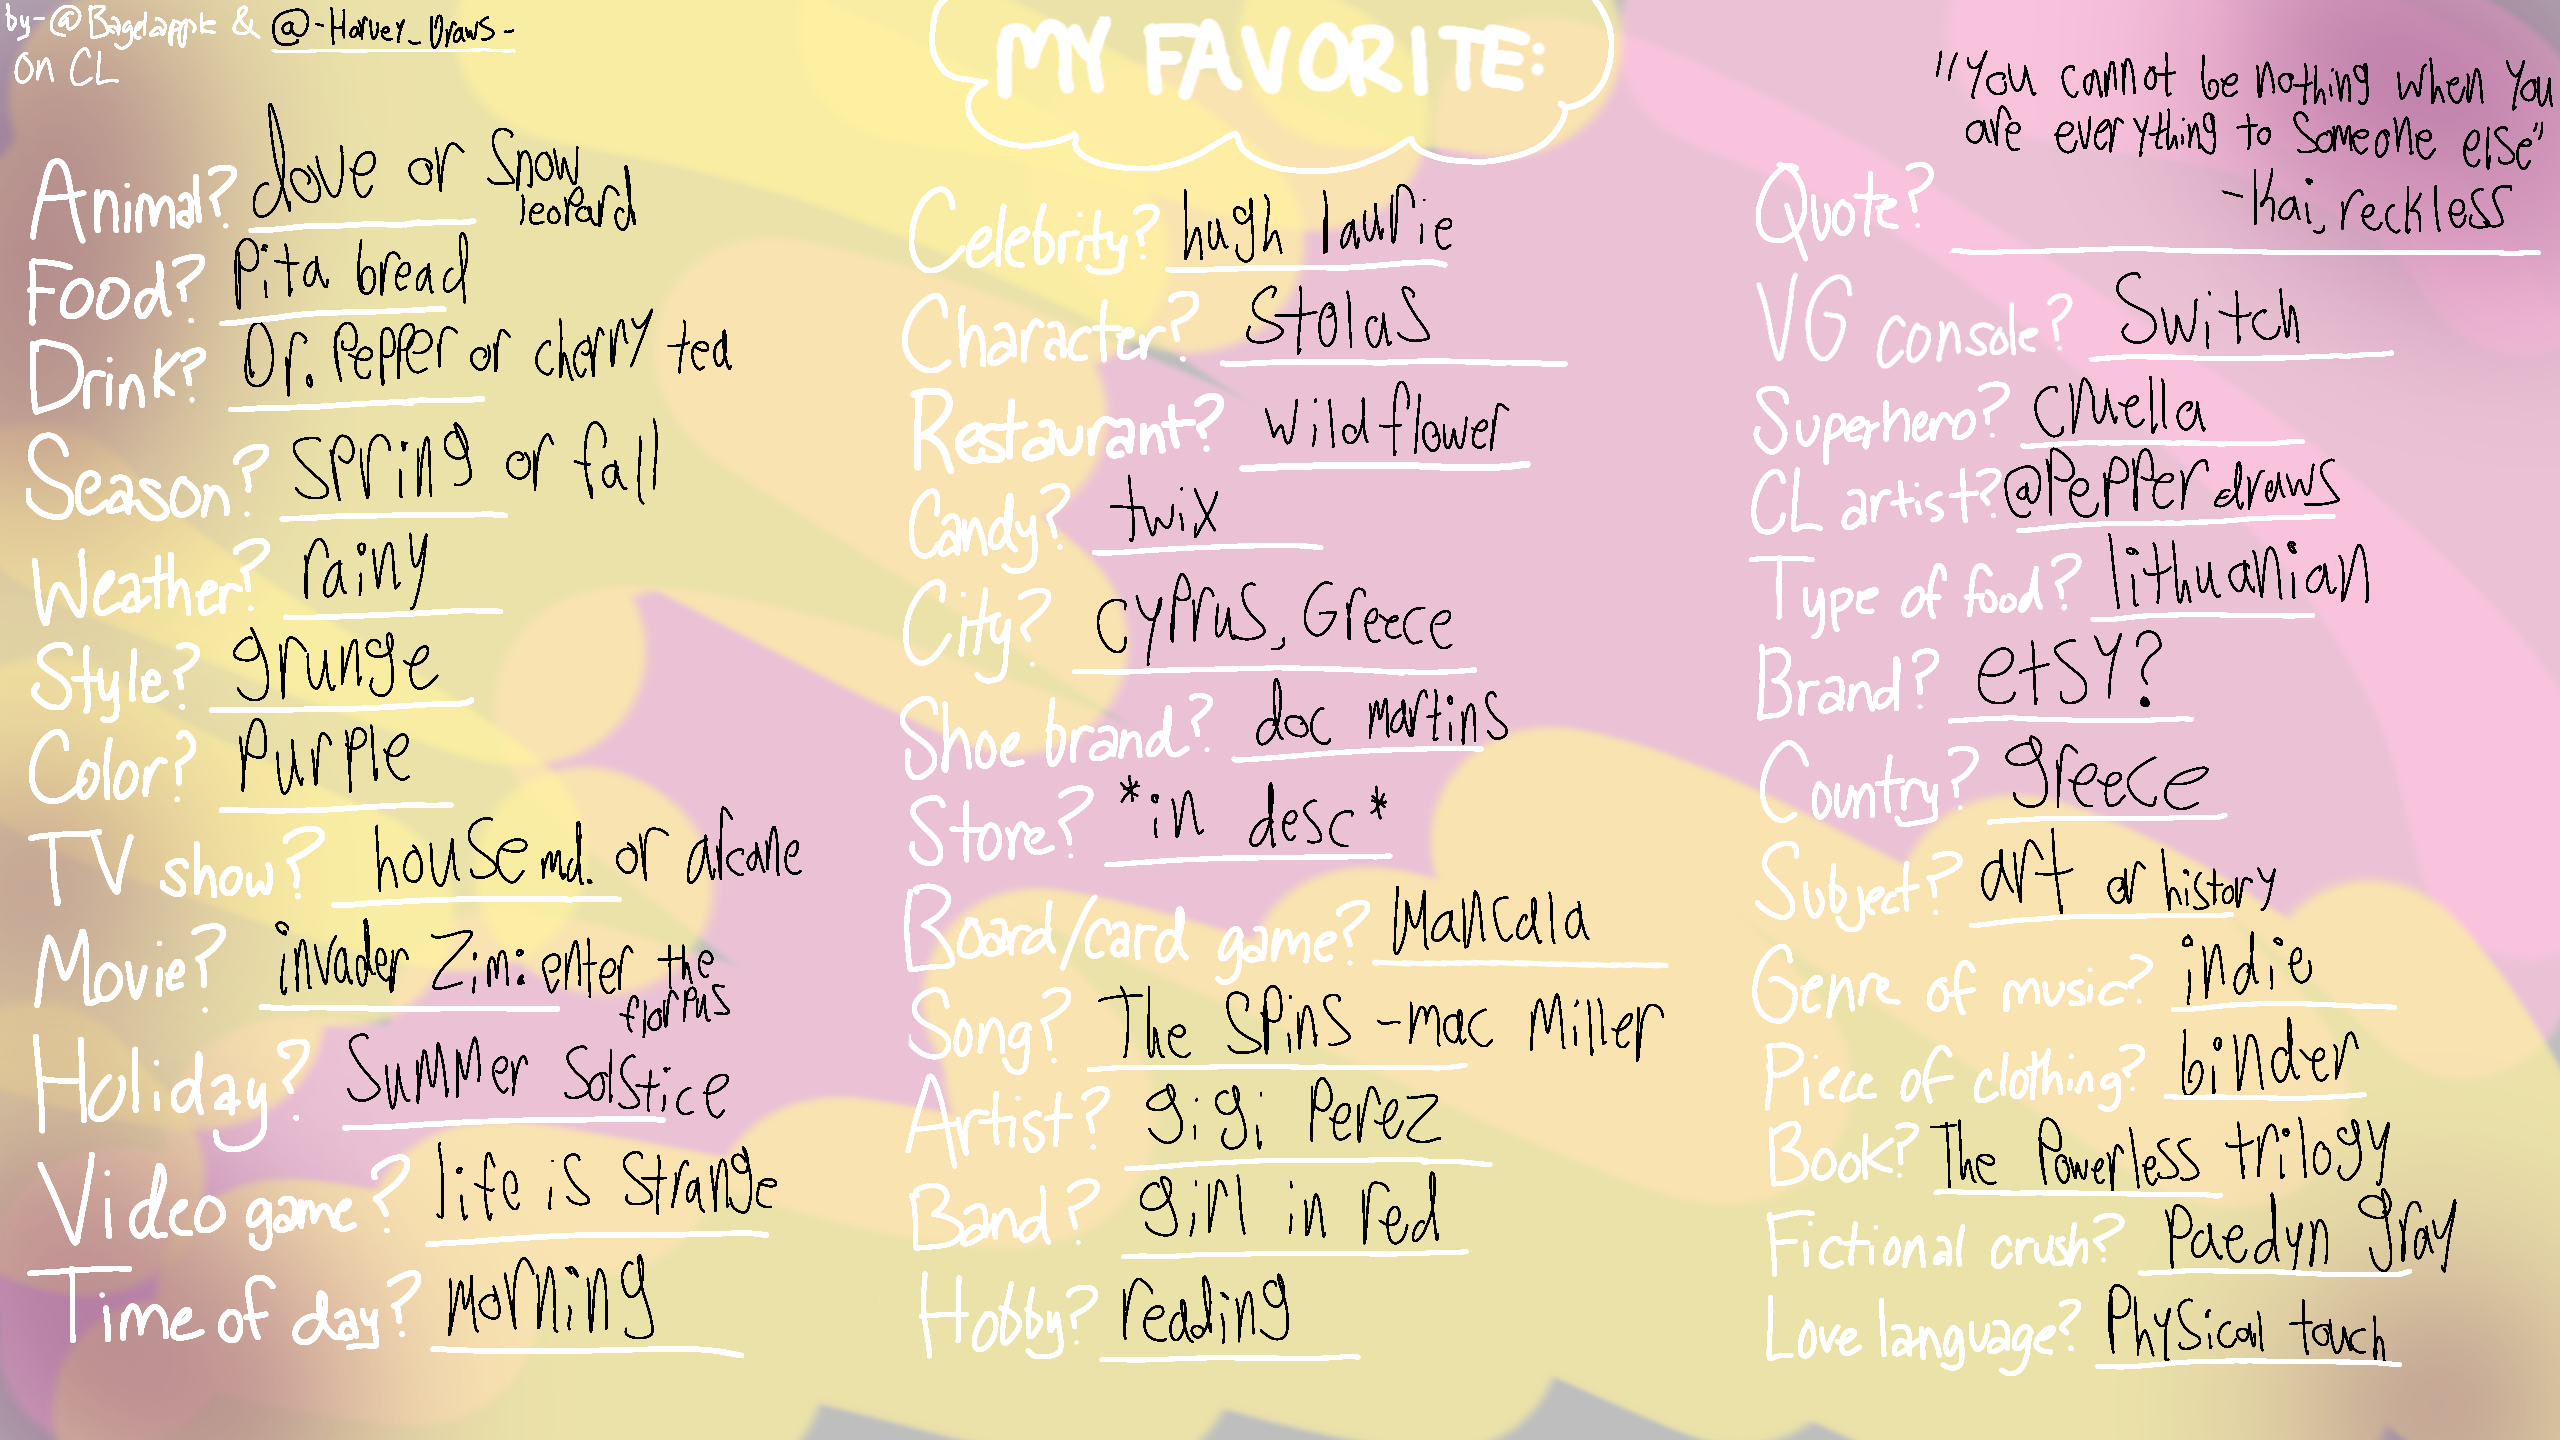 by- @Bagelapple & @-Harvey_Draws-
on CL
MY FAVORITE:
Animal? dove or snow
leopard
Food? Pita bread
Drink? Dr. Pepper or cherry tea
Season? spring or fall
Weather? rainy
Style? grunge
Color? Purple
TV show? house md. or arcane
Movie? invader Zim: enter the
florpus
Holiday? Summer Solstice
Video game? life is strange
Time of day? morning
Celebrity? hugh laurie
Character? Stolas
Restaurant? wildflower
Candy? twix
City? cyprus, Greece
Shoe brand? doc martins
Store? *in desc*
Board/card game? Mancala
Song? The Spins -mac Miller
Artist? gigi Perez
Band? girl in red
Hobby? reading
"You cannot be nothing when you
are everything to someone else"
Quote? -Kai, reckless
VG console? Switch
Superhero? cruella
CL artist? @Pepperdraws
Type of food? lithuanian
Brand? etsy?
Country? greece
Subject? art or history
Genre of music? indie
Piece of clothing? binder
Book? The Powerless trilogy
Fictional crush? Paedyn gray
Love language? Physical touch